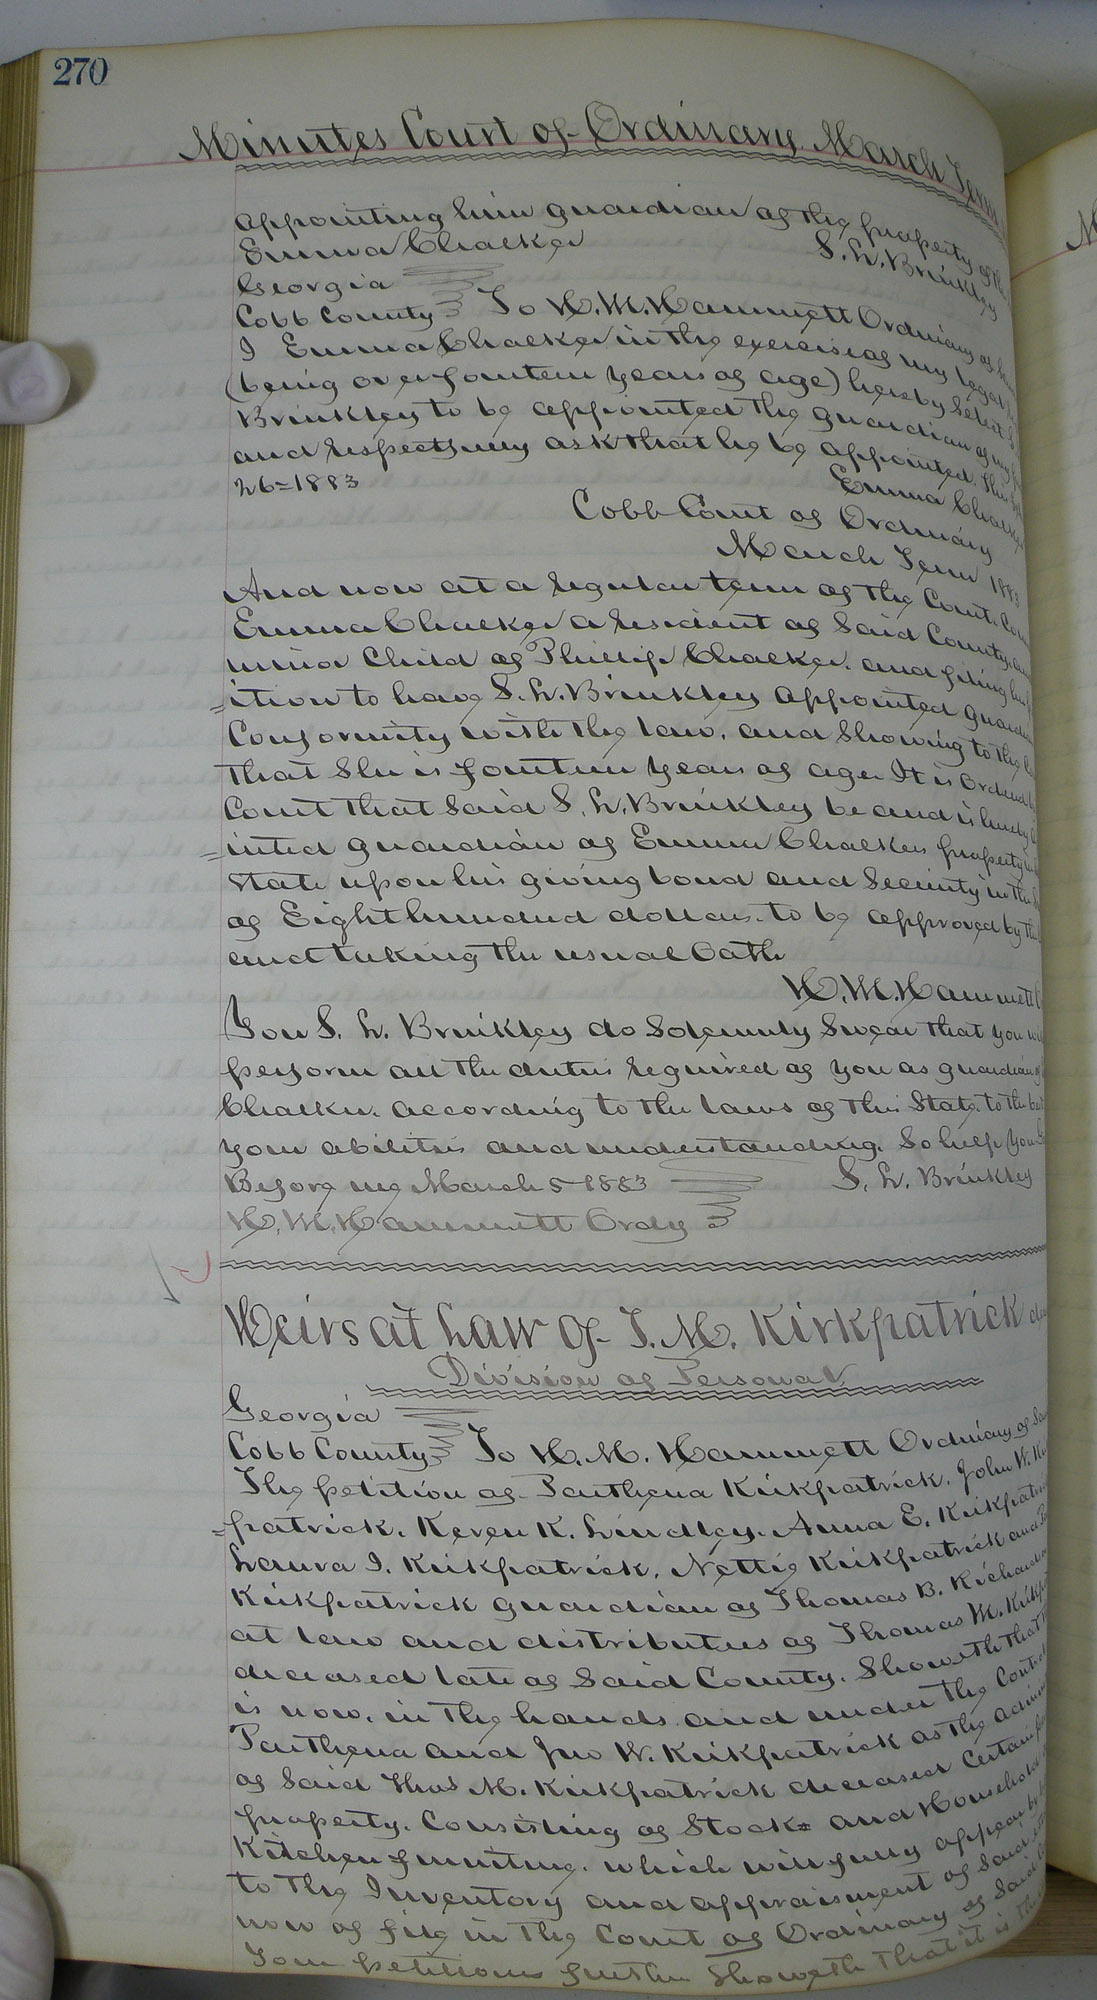 270
Minutes Court of Ordinary March Term
appointing him guardian of the property of the
Emma Chalker S. L. Brinkley
Georgia
Cobb County To H. M. Hammett Ordinary of
I Emma Chalker in the exercise of my legal
(being over fourteen years of age) hereby Select S
Brinkley to be appointed the guardian of my
and respectfully ask that he be appointed. This
26=1883 Emma Chalker
Cobb Court of Ordinary
March Term 1883
And now at a regular term of the Court.
Emma Chalker a resident of Said County,
minor Child of Phillip Chalker. and filing her
=ition to have S. L. Brinkley appointed guardian
Conformity with the law, and Showing to the
that She is fourteen years of age. It is Ordered
Court that Said S. L. Brinkley be and is hereby
=inted guardian of Emma Chalkers property
State upon his giving bond and Security in the
of Eight hundred dollars. to be approved by the
and taking the usual Oath
H. M. Hammett
You S. L. Brinkley do Solemnly Swear that you
perform all the duties required of you as guardian
Chalker. according to the laws of this State to the
your abilities and understanding. So help you
Before me March 5 1883 S. L. Brinkley
H. M. Hammett Ordy
Heirs at Law Of T. M. Kirkpatrick
Division of Personal
Georgia
Cobb County To H. M. Hammett Ordinary of
The petition of Parthena Kirkpatrick, John W.
=patrick, Keren K. Lindley. Anna E. Kirkpatrick
Laura I. Kirkpatrick, Nettie Kirkpatrick and
Kirkpatrick guardian of Thomas B.
at law and distributees of Thomas M.
deceased late of Said County. Showeth that
is now. in the hands and under the Control
Parthena and Jno W. Kirkpatrick as the
of Said Thos M. Kirkpatrick deceased Certain
property. Consisting of Stock and Household
Kitchen furniture. which will fully appear by
to the Inventory and appraisment of Said
now of file in the Court of Ordinary of Said
Your petitioners further Showeth that it is the